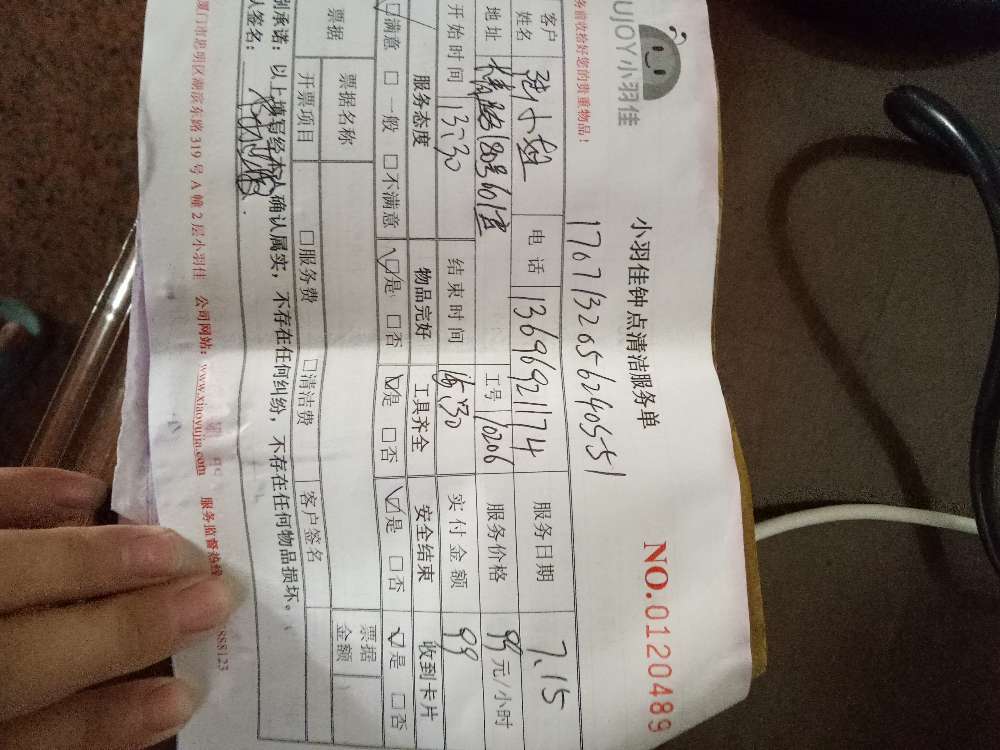 UJOY小羽佳
小羽佳钟点清洁服务单
NO.0120489
务前收拾好您的贵重物品!
1707132056240551
客户姓名 小姐 电话 13696921174 服务日期 7.15
地址 工号 10206 服务价格 99元/小时
开始时间 13:30 结束时间 :30 实付金额 99
服务态度 物品完好 工具齐全 安全结束 收到卡片
☑满意 □一般 □不满意 ☑是 □否 ☑是 □否 ☑是 □否 ☑是 □否
票据 票据名称 客户签名 票据金额
开票项目 □服务费 □清洁费
别承诺:以上填写经本人确认属实,不存在任何纠纷,不存在任何物品损坏。
人签名:
厦门市思明区湖滨东路319号A幢2层小羽佳 公司网站:www.xiaoyujia.com 服务监督热线 888123